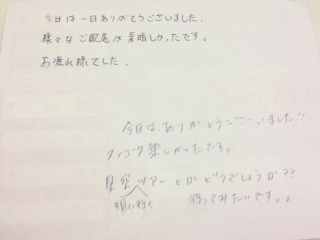 今日は一日ありがとうございました。
様々なご配慮が素晴しかったです。
お疲れ様でした。
今日は、ありがとうございました!!
スッゴク楽しかったです。
星空ツアーとかどうでしょうか??
観に行く 行ってみたいです。。